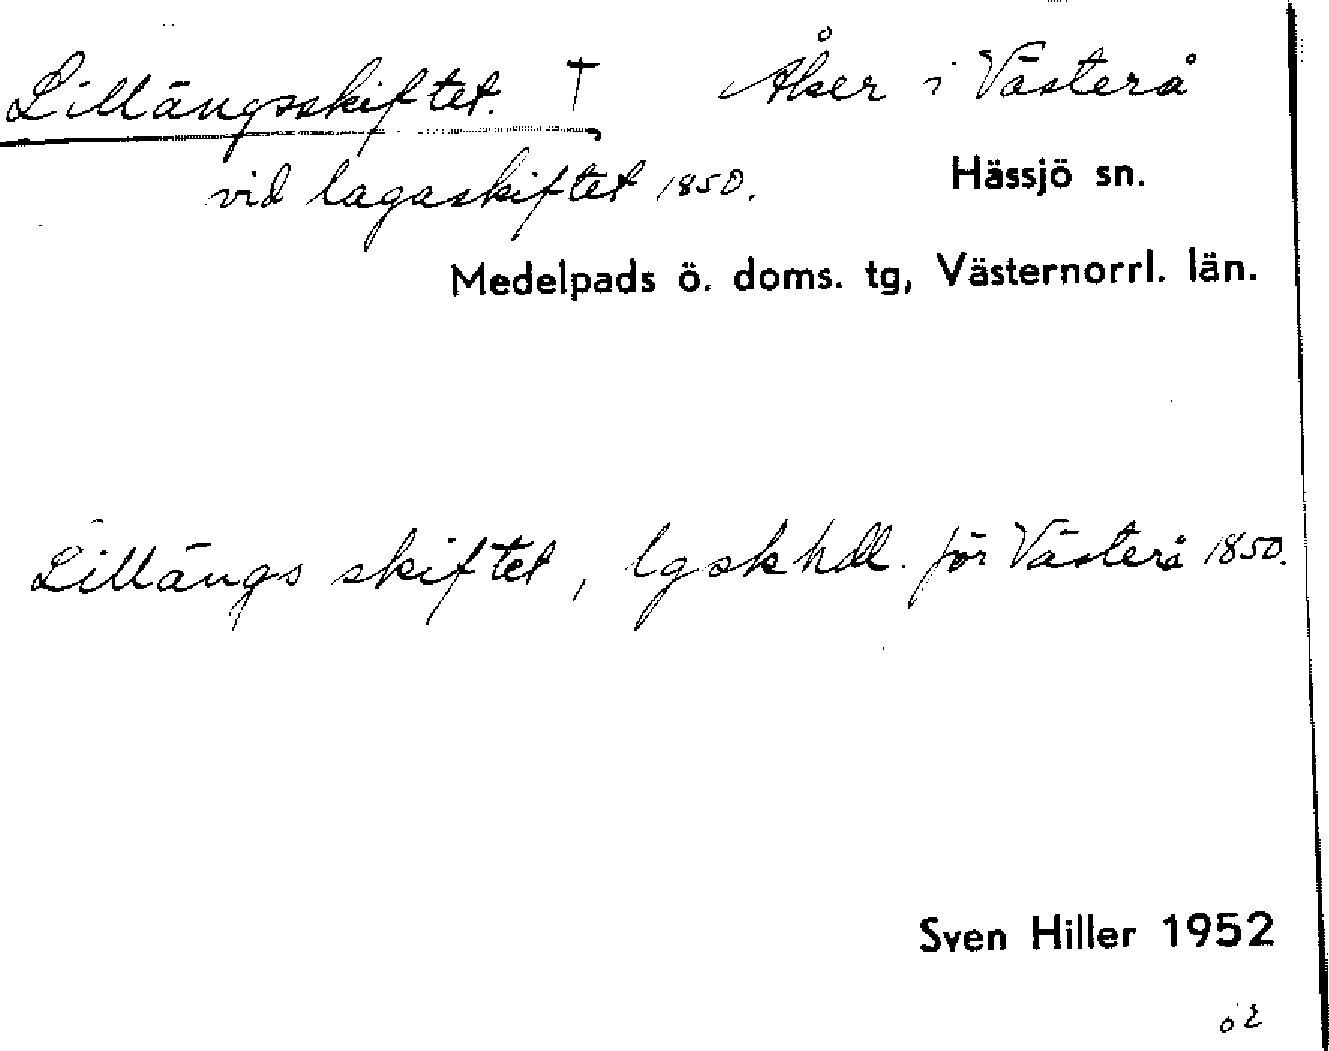 Lillängsskiftet. † Åker i Västerå
vid lagaskiftet 1850. Hässjö sn.
Medelpads ö. doms. tg, Västernorrl. län.
Lillängs skiftet, lgskhdl. för Västerå 1850.
Sven Hiller 1952